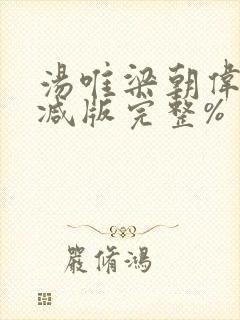 湯唯梁朝偉
減版完整%
嚴脩鴻